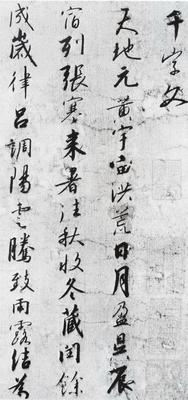 千字文
天地元黃宇宙洪荒日月盈昃辰
宿列張寒來暑往秋收冬藏閏餘
成歲律呂調陽雲騰致雨露結為